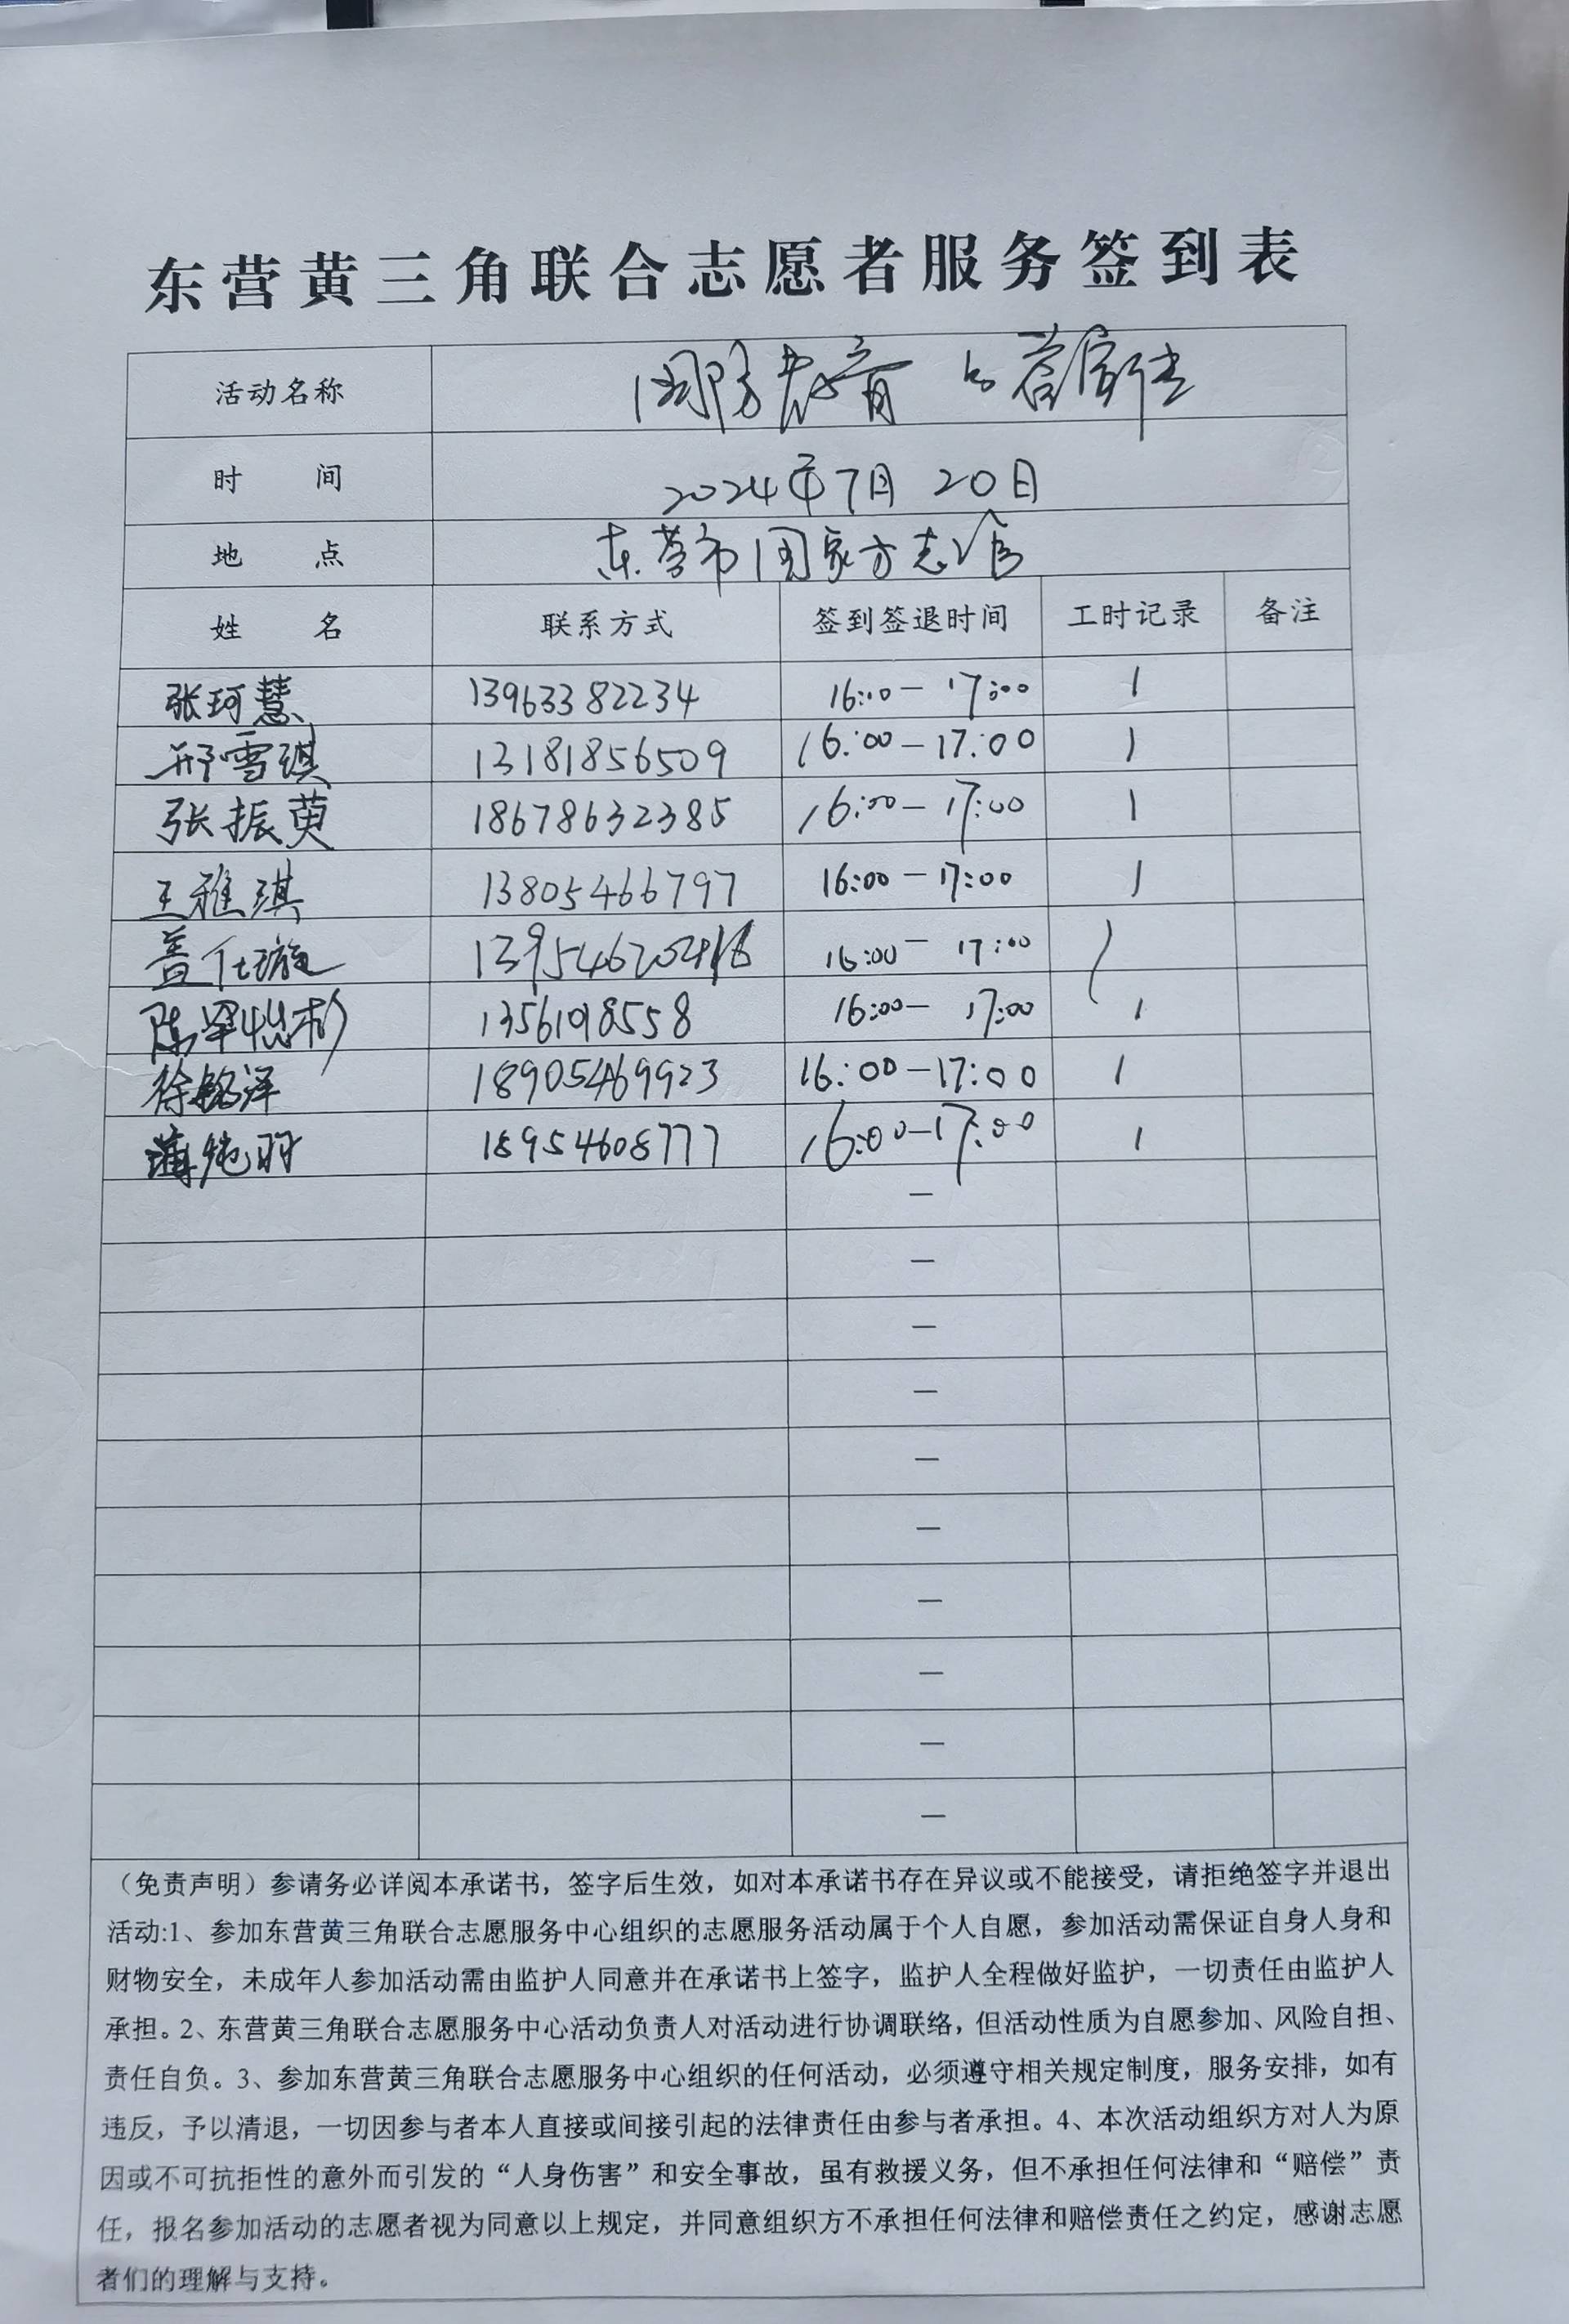 东营黄三角联合志愿者服务签到表
活动名称 国防教育
时 间 2024年7月20日
地 点 东营市国家方志馆
姓 名 联系方式 签到签退时间 工时记录 备注
张珂慧 13963382234 16:00－17:00 1
邢雪琪 13181856509 16:00－17:00 1
张振萸 18678632385 16:00－17:00 1
王雅琪 13805466797 16:00－17:00 1
盖仕璇 16:00－17:00 1
陈 16:00－17:00 1
徐铭泽 18905469923 16:00－17:00 1
薄 18954608777 16:00－17:00 1
－
－
－
－
－
－
－
－
－
－
（免责声明）参请务必详阅本承诺书，签字后生效，如对本承诺书存在异议或不能接受，请拒绝签字并退出
活动:1、参加东营黄三角联合志愿服务中心组织的志愿服务活动属于个人自愿，参加活动需保证自身人身和
财物安全，未成年人参加活动需由监护人同意并在承诺书上签字，监护人全程做好监护，一切责任由监护人
承担。2、东营黄三角联合志愿服务中心活动负责人对活动进行协调联络，但活动性质为自愿参加、风险自担、
责任自负。3、参加东营黄三角联合志愿服务中心组织的任何活动，必须遵守相关规定制度，服务安排，如有
违反，予以清退，一切因参与者本人直接或间接引起的法律责任由参与者承担。4、本次活动组织方对人为原
因或不可抗拒性的意外而引发的“人身伤害”和安全事故，虽有救援义务，但不承担任何法律和“赔偿”责
任，报名参加活动的志愿者视为同意以上规定，并同意组织方不承担任何法律和赔偿责任之约定，感谢志愿
者们的理解与支持。